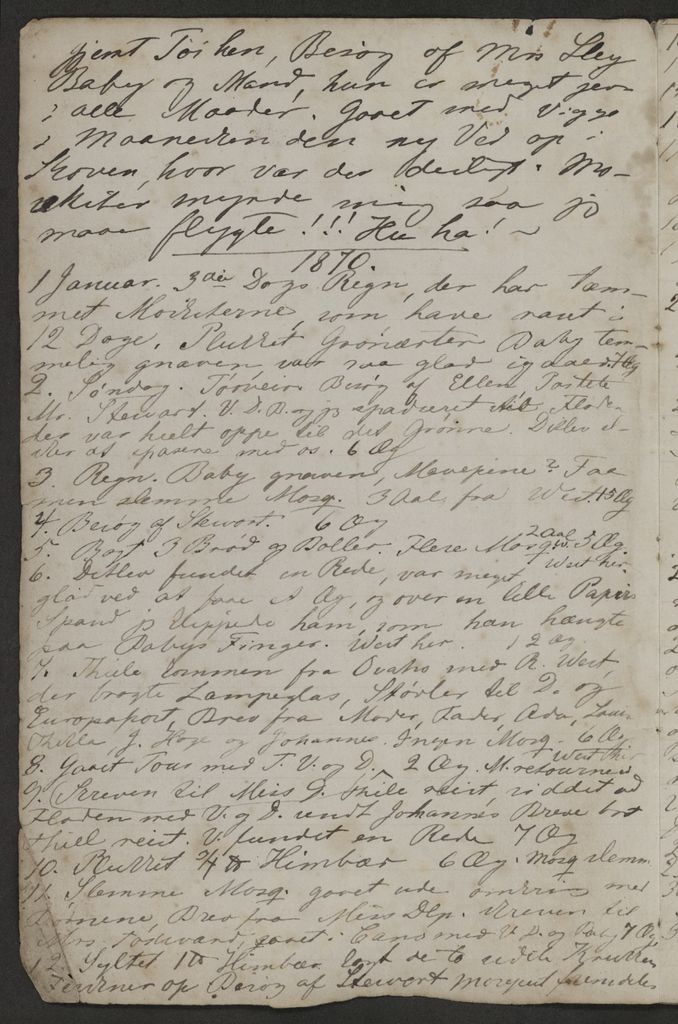 jemt Töi hen, Besög af Mrs Sley
Baby og Mand, hun er meget pæn
i alle Maader. Gaaet med Viggo
i Maaneskin den ny Vei op i
Skoven, hvor var der deiligt. Mo-
skiter myrde mig saa jeg
maae flygte!!! Hu ha!
1870
1 Januar. 3die Dags Regn, der har tæm-
met Moskiterne, som have raset i
12 Dage. Plukket Grönærter Baby tem-
melig gnaven var saa glad igaar. 7 Æg
2. Söndag. Törveir Besög af Ellen
Mr. Stewart. V. D. B. og jeg spadseret til Floden
der var heelt oppe til det Grönne. Ditlev
at med os. 6 Æg
3. Regn. Baby gnaven, Mavepine? Faa
men slemme Mosq. 3 Aal fra West. 15 Æg
4. Besög af Stewart. 6 Æg
5. Bagt 3 Bröd og Boller. Flere Mosq. 2 Aal 5 Æg.
6. Ditlev fundet en Rede, var meget West her.
glad ved at faae et Æg, og over en lille Papiirs
Spand jeg klippede ham, som han hængte
paa Babys Finger. West her. 12 Æg
7. Thiele kommen fra Ovaho med R. West,
der bragte Lampeglas, Stövler til D. og
Europapost, Brev fra Moder, Fader, Ada,
Thilla J. Hage og Johannes. Ingen Mosq. 6 Æg
8. Gaaet Tour med T. V. og D. 2 Æg. M. retourneret West
9. Skreven til Miss D. Thile reist, riddet ad
Floden med V. og D. sendt Johannes Breve bort
Thiell reist. V. fundet en Rede 7 Æg
10. Plukket 3/4 ℔ Himbær 6 Æg. Mosq slemme
11. Slemme Mosq. gaaet ude omkring med
Brev fra Miss Dlp. skreven til
Mrs. gaaet i Cano med V. D. og Baby 7 Æg
12. Syltet 1 ℔ Himbær de to
op Besög af Stewart